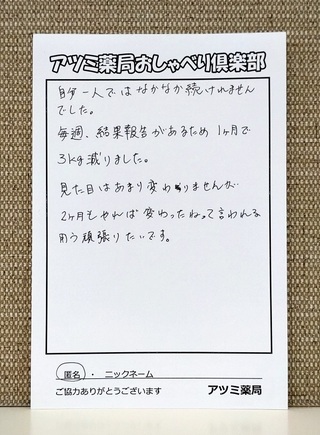 アツミ薬局おしゃべり倶楽部
自分一人ではなかなか続けれません
でした。
毎週、結果報告があるため1ヶ月で
3kg減りました。
見た目はあまり変わりませんが
2ヶ月もやれば変わったねって言われる
用う頑張りたいです。
匿名 ・ ニックネーム
ご協力ありがとうございます
アツミ薬局